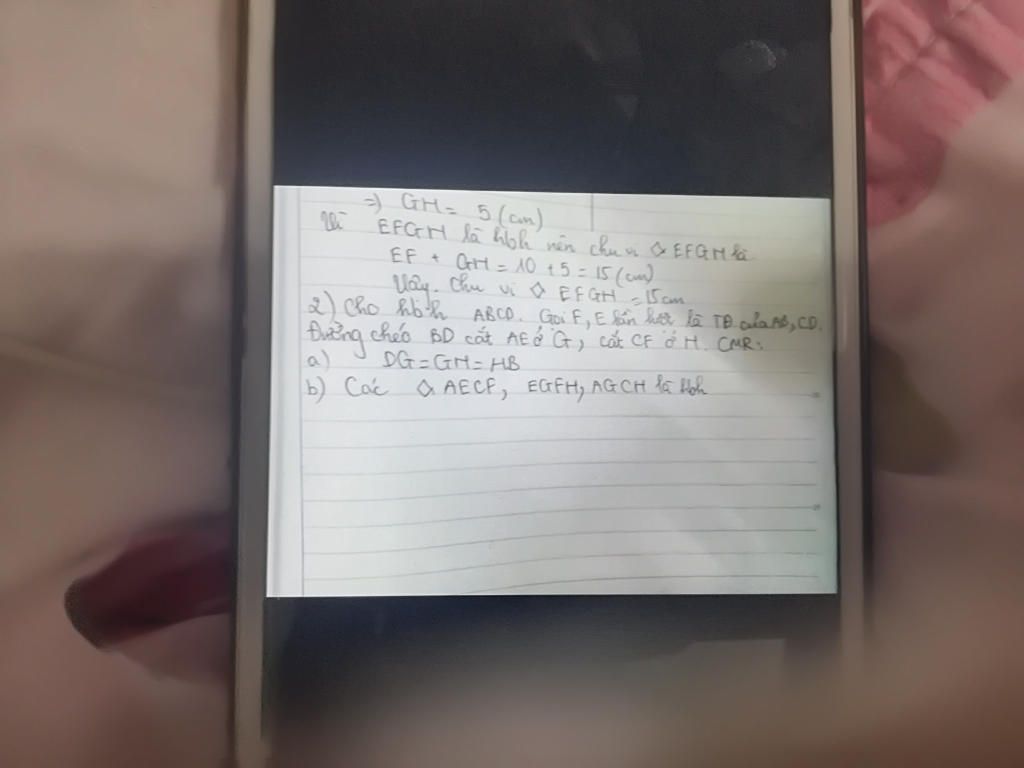 =) GH = 5 (cm)
Vì EFGH là hbh nên chu vi ◇ EFGH là
EF + GH = 10 + 5 = 15 (cm)
Vậy. Chu vi ◇ EFGH = 15cm
2) Cho hbh ABCD. Gọi F, E lần lượt là TĐ của AB, CD.
Đường chéo BD cắt AE ở G, cắt CF ở H. CMR:
a) DG = GH = HB
b) Các ◇ AECF, EGFH, AGCH là hbh